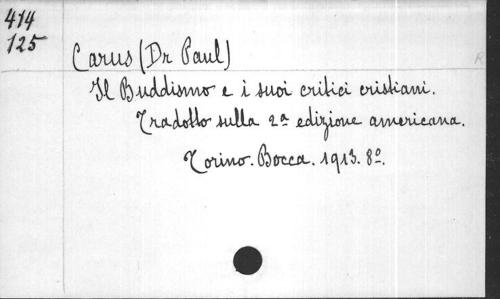 414
125
Carus (Dr Paul)
Il Buddismo e i suoi critici cristiani.
Tradotto sulla 2ª edizione americana.
Torino. Bocca. 1913. 8º.